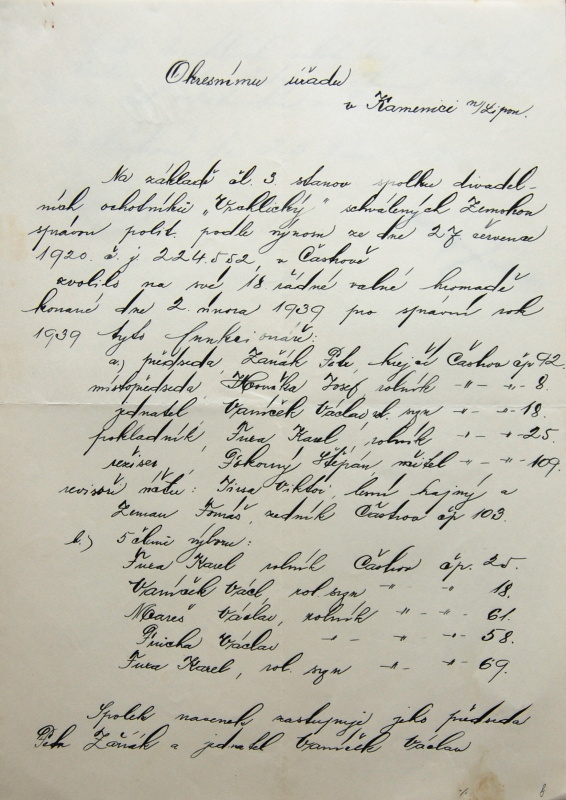 Okresnímu úřadu
v Kamenici n/Lipou.
Na základě čl. 3. stanov spolku divadel-
ních ochotníků „Vrchlický" schválených Zemskou
správou polit. podle výnosu ze dne 27. července
1920. č. j. 224.552. v Častrově
zvolilo na své 18. řádné valné hromadě
konané dne 2. února 1939 pro správní rok
1939 tyto funkcionáře:
a.) předseda Petr, krejčí Častrov čp 92.
místopředseda Josef rolník -"- -"- 8.
jednatel, Vaníček Václav rl. syn -"- -"- 18.
pokladník, Fura Karel, rolník -"- -"- 25.
režiser, Pokorný Štěpán, učitel -"- 109.
revisoři účtů: Viktor, lesní hajný a
Zeman Tomáš, zedník Častrov čp 103.
b.) 5 členů výboru:
Fura Karel rolník Častrov čp. 25.
Vaníček Václ. rol. syn -"- " 18.
Mareš Václav, rolník -"- -"- 61.
Václav -"- -"- -"- 58.
Fura Karel, rol. syn -"- -"- 69.
Spolek navenek zastupuje jeho předseda
Petr a jednatel Vaníček Václav